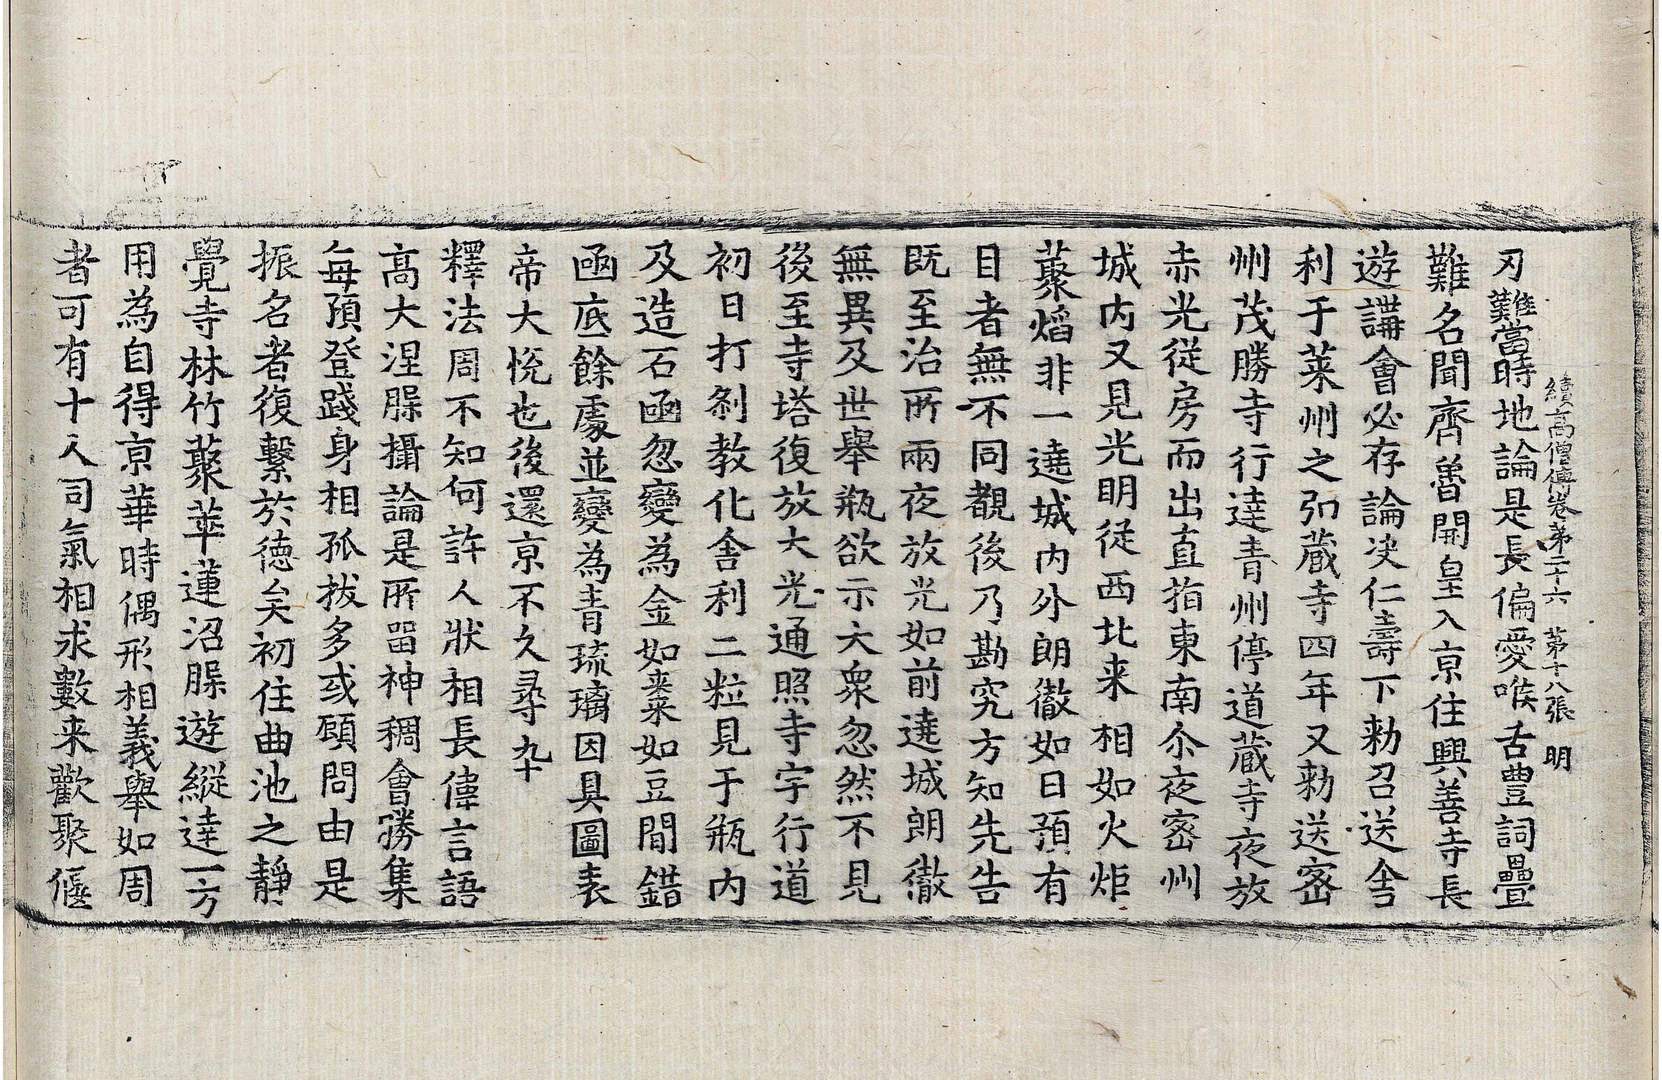 續高僧傳卷第二十六　第十八張　明
刃難當時地論是長偏愛喉舌豊詞疊
難名聞齊魯開皇入京住興善寺長
遊講會必存論决仁壽下勑召送舍
利于萊州之弘藏寺四年又勑送密
州茂勝寺行達青州停道藏寺夜放
赤光從房而出直指東南尒夜密州
城内又見光明從西北来相如火炬
藂熖非一遶城内外朗徹如日預有
目者無不同覩後乃勘究方知先告
既至治所兩夜放光如前遶城朗徹
無異及世舉瓶欲示大衆忽然不見
後至寺塔復放大光通照寺宇行道
初日打剎教化舍利二粒見于瓶内
及造石函忽變為金如棗如豆間錯
函底餘處並變為青琉璃因具圖表
帝大悅也後還京不久尋九十
釋法周不知何許人狀相長偉言語
高大涅槃攝論是所留神稠會勝集
每預登踐身相孤拔多或顧問由是
振名者復繫於德矣初住曲池之靜
覺寺林竹藂萃蓮沼槃遊縱達一方
用為自得京華時偶形相義舉如周
者可有十人同氣相求數来歡聚偃